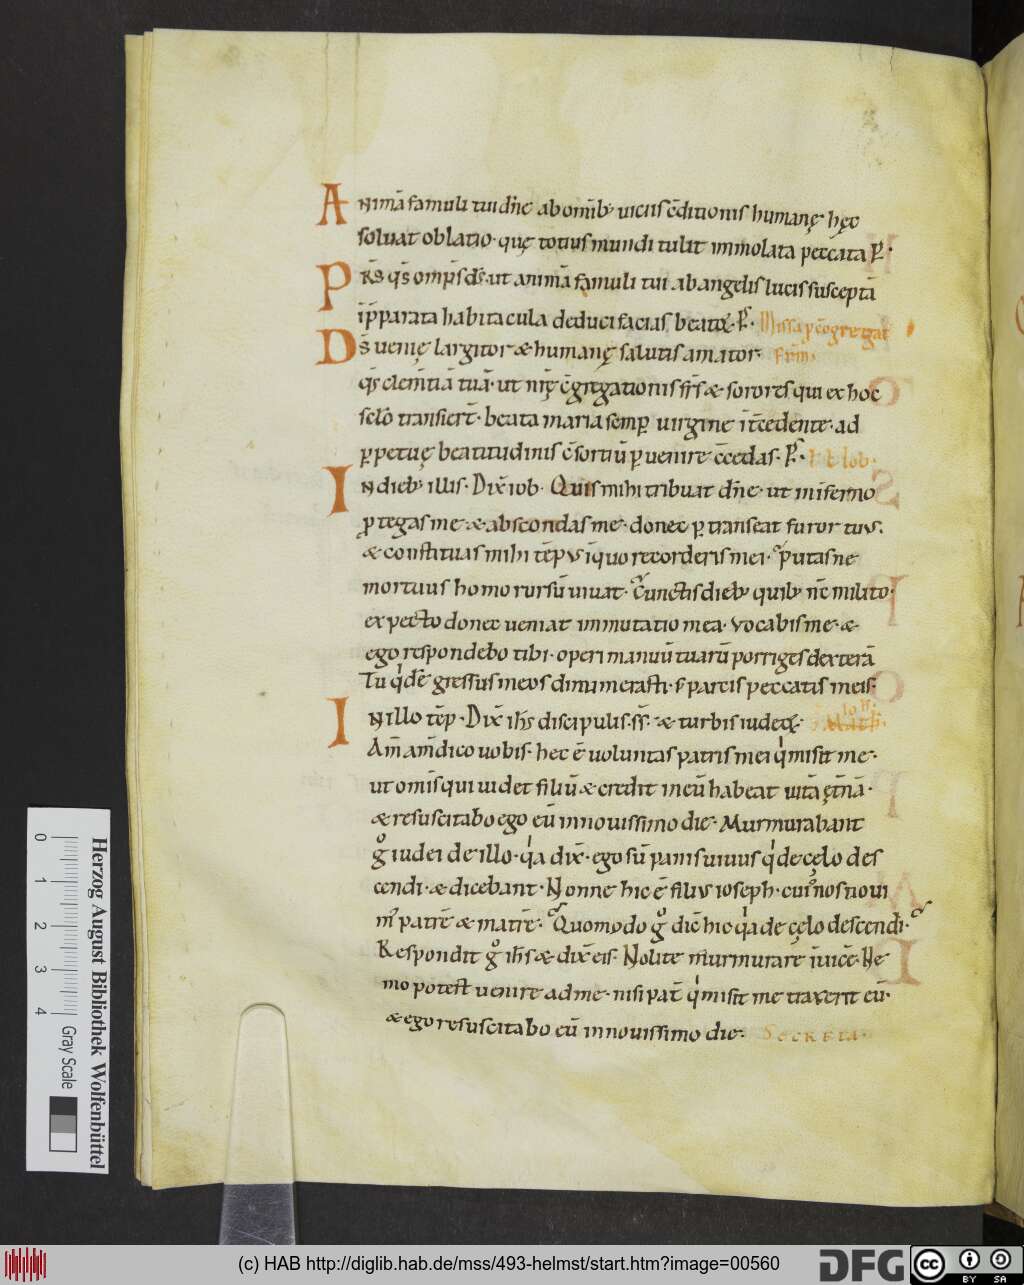 Animā famuli tui dn̄e ab omīb; uiciis c̄ditionis humanę hęc
soluat oblatio· quę totius mundi tulit immolata peccata p̲·
Prs̄ qs̄ omp̄s ds̄· ut animā famuli tui ab angelis lucis susceptā
ip̄parata habitacula deduci facias beatoꝝ· P̲· Missa p̲ c̄gregat
Ds̄ uenię largitor & humanę salutis amator· frm̄·
qs̄ clem̄tiā tuā· ut nr̄ę c̄gregationis frs̄ & sorores qui ex hoc
sclo̅ transiert̄· beata maria semp̲ uirgine it̄cedente· ad
p̲petuę beatitudinis c̄sortiū p̲uenire c̄cedas· P̲· Iob·
In dieb; illis· Dix̄ iob· Quis mihi tribuat dn̄e· ut in inferno
ꝓtegas me· & abscondas me· donec p̲transeat furor tuus·
& constituas mihi tēpus in̄ quo recorderis mei· Putasne
mortuus homo rursū uiuat· Cunctis dieb; quib; nc̄ milito·
expecto donec ueniat immutatio mea· Vocabis me· &
ego respondebo tibi· operi manuū tuarū porriges dexterā
Tu qͥdē gressus meos dinumerasti· s; parcis peccatis meis·
In illo tēp̲· Dix̄ ihs̄ discipulis· ss̄· & turbis iudeoꝝ· Ioh̄·
Am̄ am̄ dico uobis· hec ē uoluntas patris mei qͥ misit me·
ut omīs qui uidet filiū & credit in eū habeat uitā ęt̄nā·
& resuscitabo ego eū in nouissimo die· Murmurabant
gͦ iudei de illo· qͥa dix̄· ego sū panis uiuus qͥ de cęlo des
cendi· & dicebant· Nonne hic ē filius ioseph· cuiͥ nos noui
mͥ patrē & matrē· Quomodo gͦ dic̄ hic qͥa de cęlo descendi·
Respondit gͦ ihs̄ & dix̄ eis· Nolite murmurare in̄uicē· Ne
mo potest uenire ad me· nisi pat̄ qͥ misit me traxerit eū·
& ego resuscitabo eū in nouissimo die· Secreta·
0 1 2 3 4
Gray Scale
Herzog August Bibliothek Wolfenbüttel
(c) HAB http://diglib.hab.de/mss/493-helmst/start.htm?image=00560
DFG
cc
BY SA